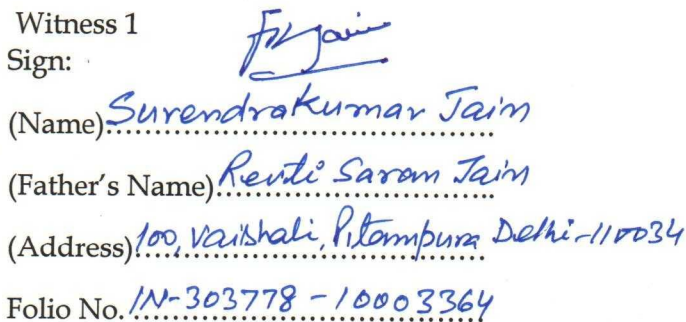 Witness 1
Sign:
(Name) Surendra Kumar Jain
(Father's Name) Revti Saran Jain
(Address) 100, Vaishali, Pitampura Delhi-110034
Folio No. IN-303778-10003364